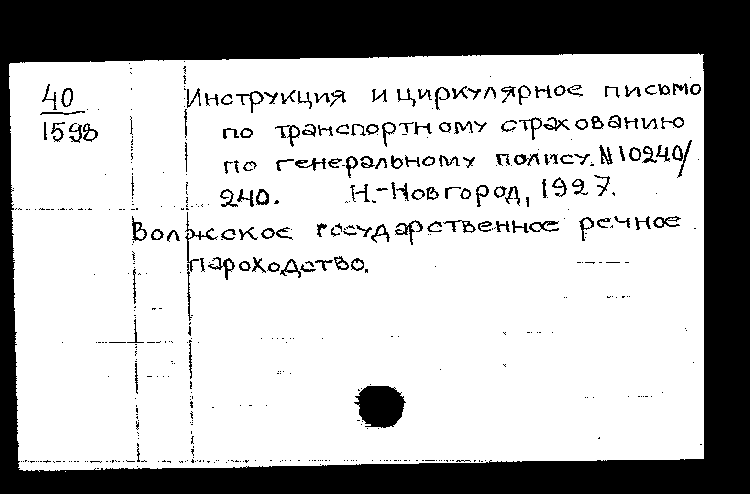 40
1598
Инструкция и циркулярное письмо
по транспортному страхованию
по генеральному полису. N 10240/
240. Н.-Новгород, 1927.
Волжское государственное речное
пароходство.